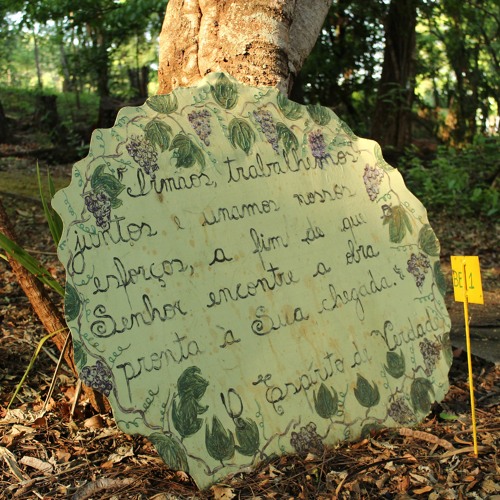 "Irmãos, trabalhemos
juntos e unamos nossos
esforços, a fim de que o
Senhor encontre a obra
pronta à Sua chegada."
O Espírito de Verdade
BE 1